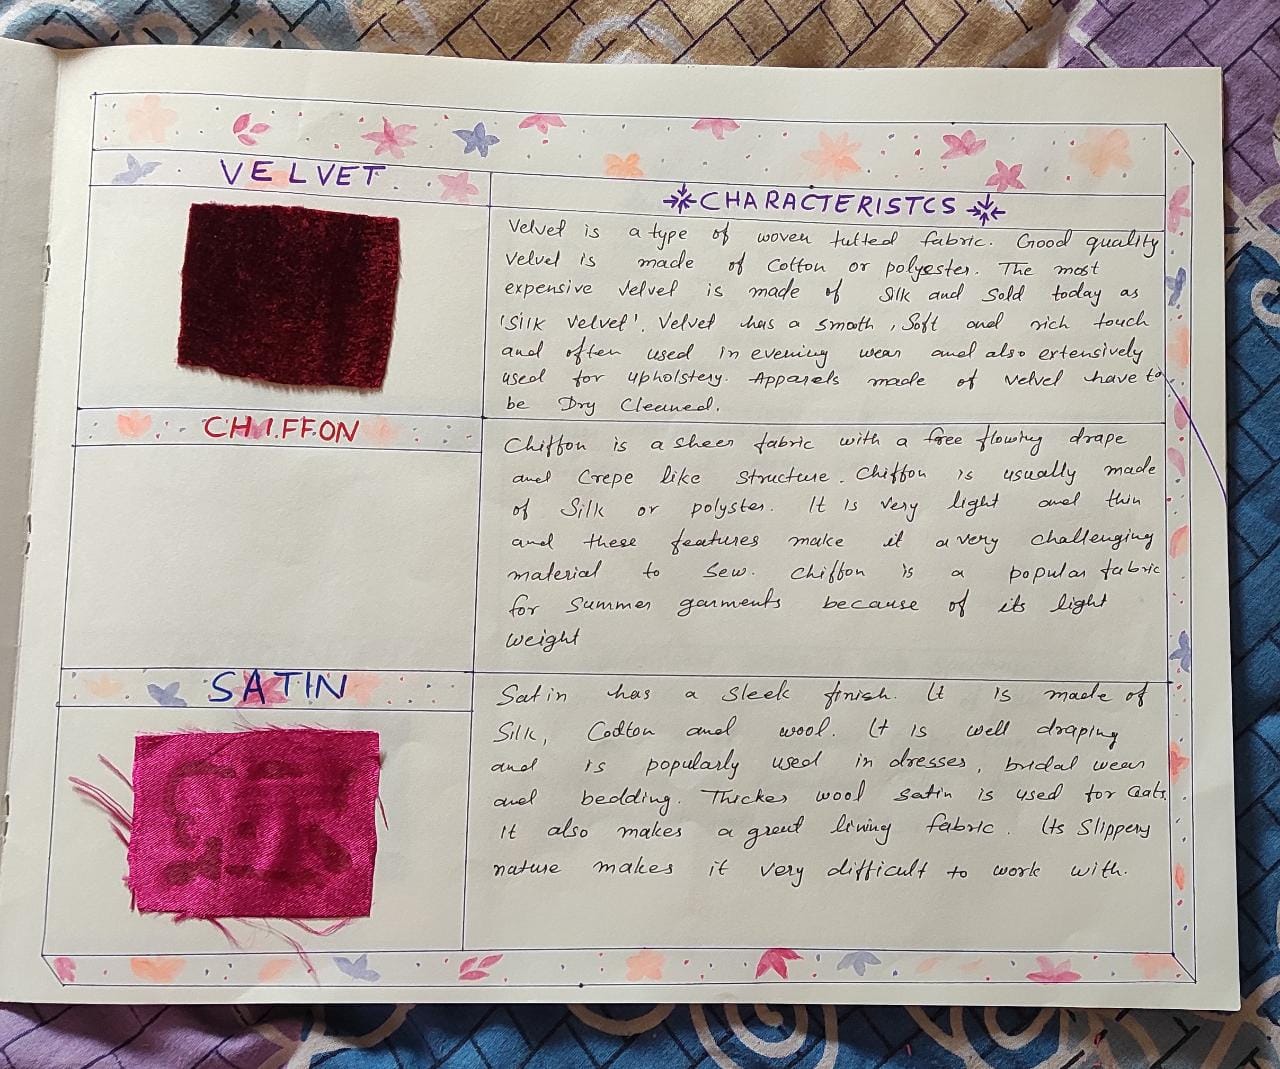 VELVET
CHARACTERISTCS
Velvet is a type of woven tufted fabric. Good quality
Velvet is made of Cotton or polyester. The most
expensive Velvet is made of Silk and Sold today as
'Silk Velvet'. Velvet has a smooth, Soft and rich touch
and often used in evening wear and also extensively
used for upholstery. Apparels made of Velvet have to
be Dry Cleaned.
CHIFFON
Chiffon is a sheer fabric with a free flowing drape
and Crepe like Structure. Chiffon is usually made
of Silk or polyster. It is very light and thin
and these features make it a very challenging
material to Sew. Chiffon is a popular fabric
for Summer garments because of its light
weight
SATIN
Satin has a Sleek finish. It is made of
Silk, Codton and wool. It is well draping
and is popularly used in dresses, bridal wear
and bedding. Thicker wool Satin is used for Coats.
It also makes a great lining fabric. Its Slippery
nature makes it very difficult to work with.